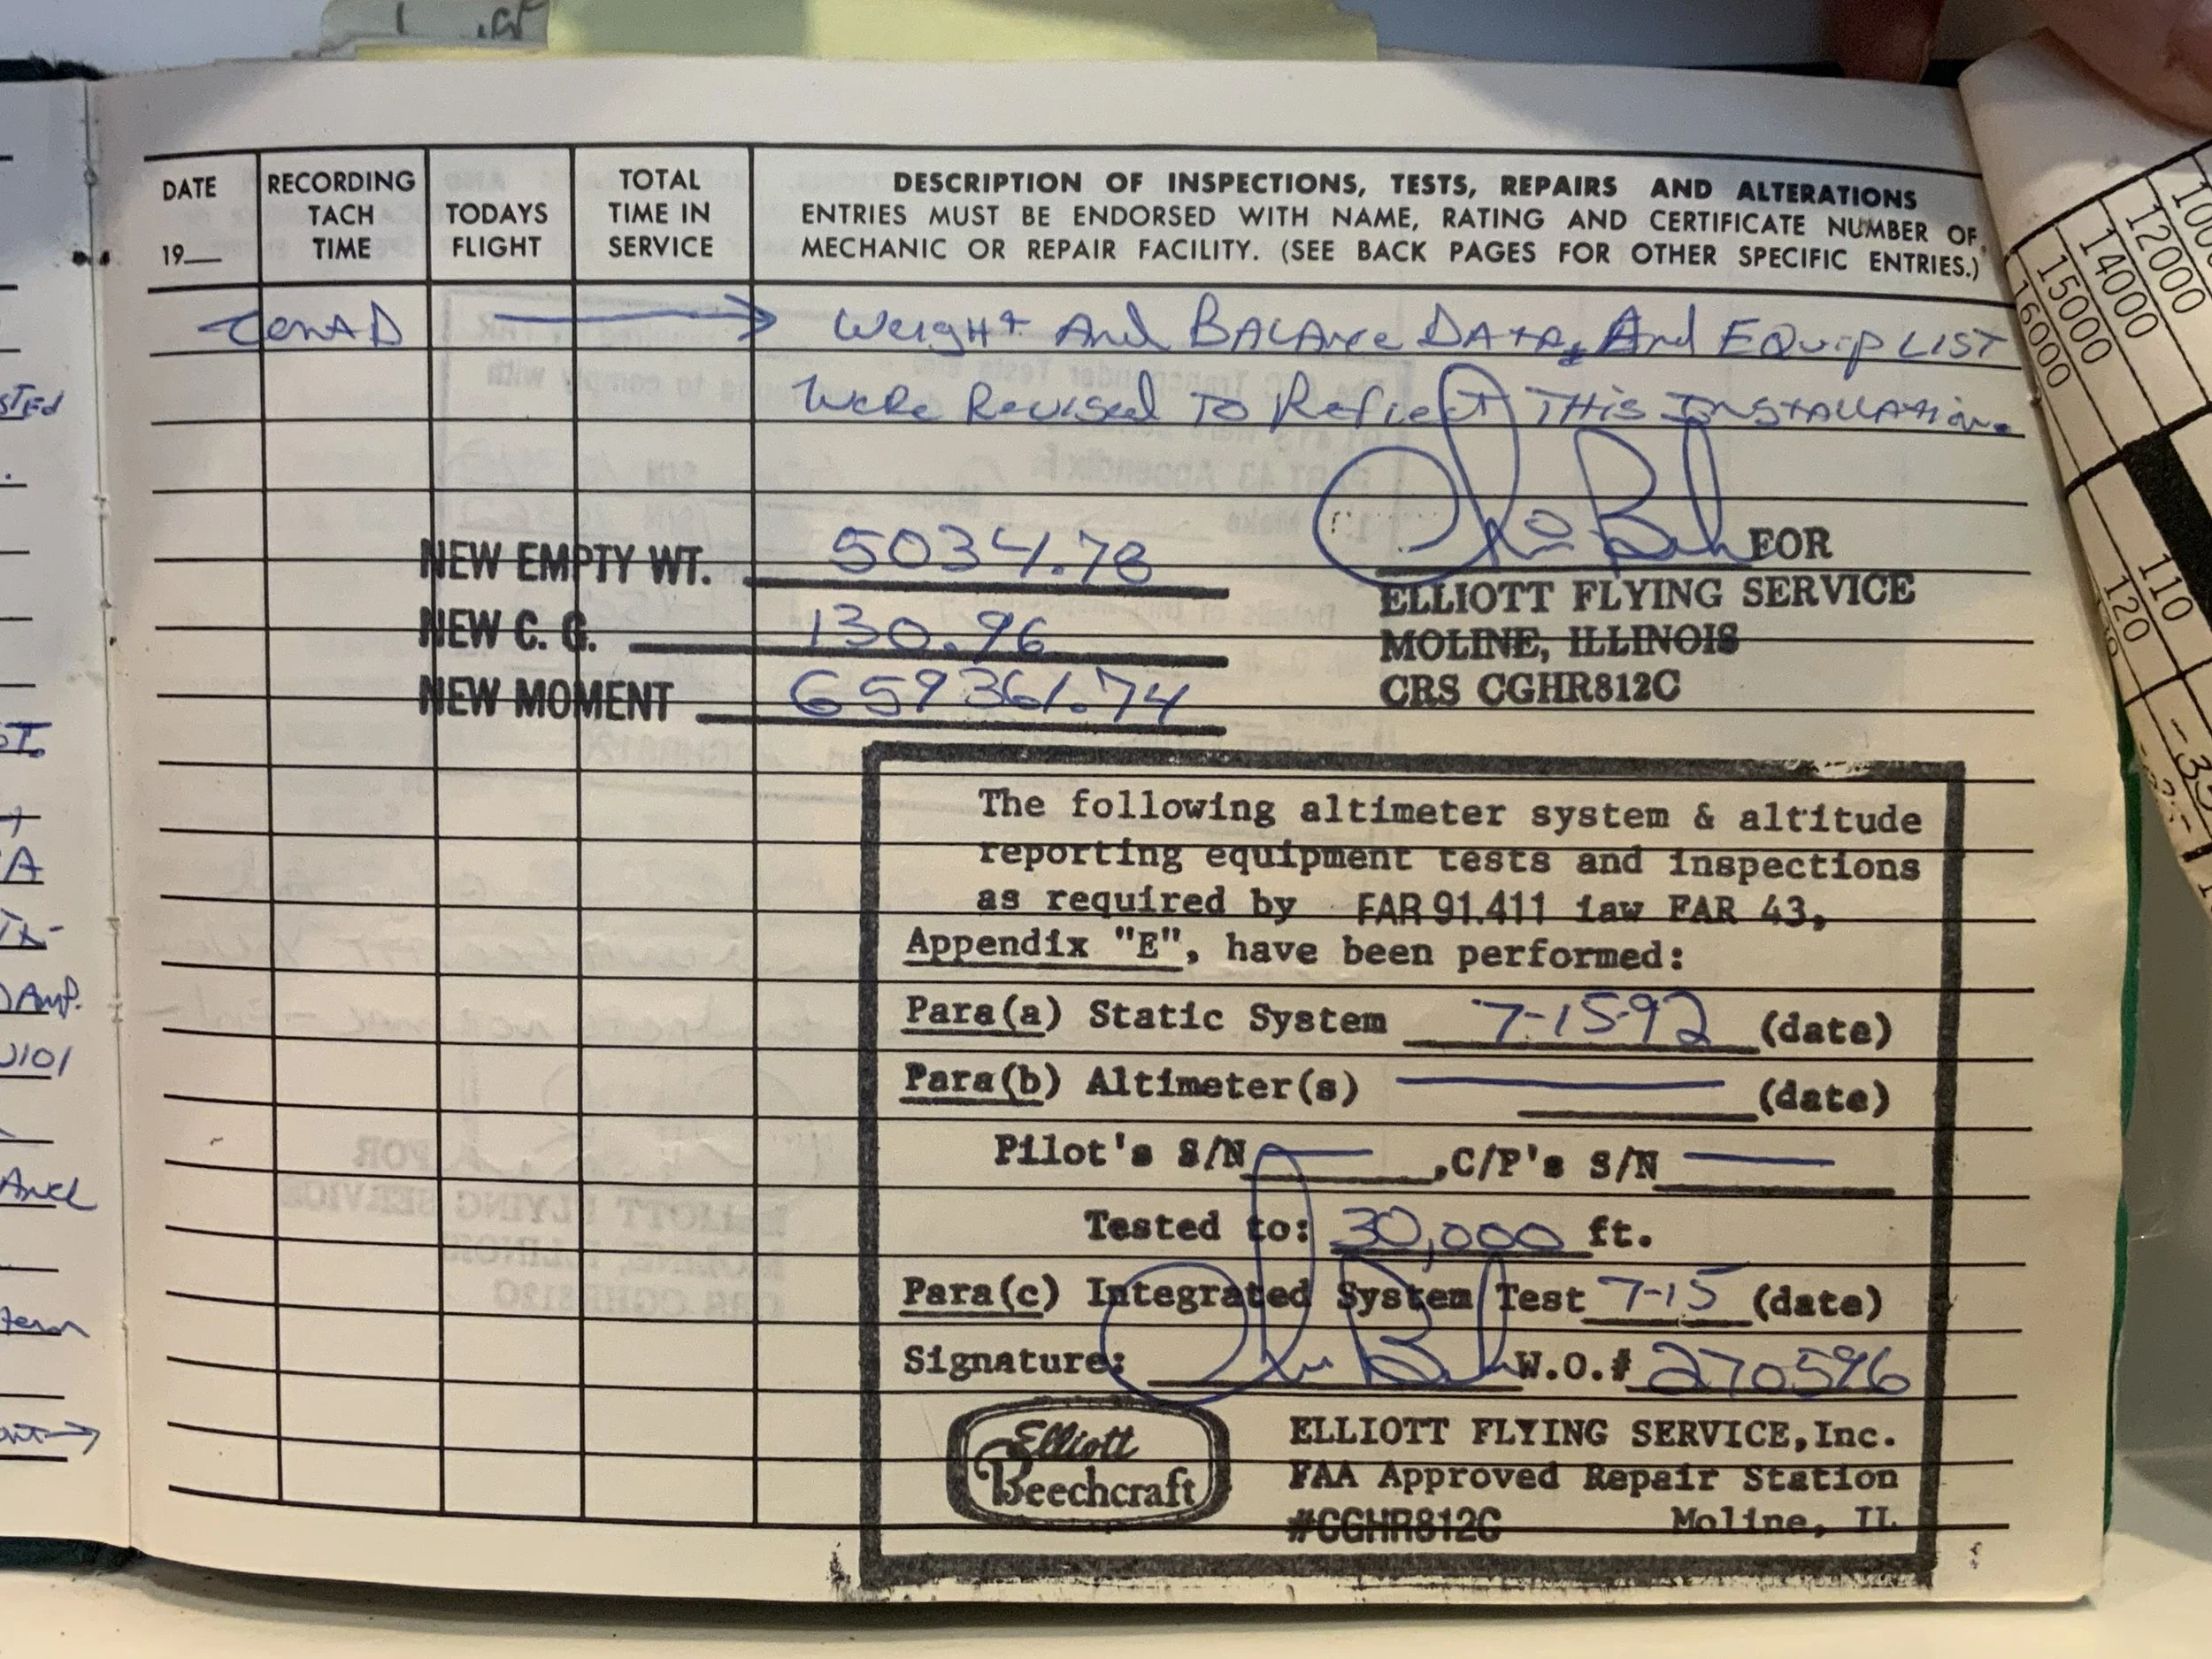 DATE
19__
RECORDING
TACH
TIME
TODAYS
FLIGHT
TOTAL
TIME IN
SERVICE
DESCRIPTION OF INSPECTIONS, TESTS, REPAIRS AND ALTERATIONS
ENTRIES MUST BE ENDORSED WITH NAME, RATING AND CERTIFICATE NUMBER OF
MECHANIC OR REPAIR FACILITY. (SEE BACK PAGES FOR OTHER SPECIFIC ENTRIES.)
ContD → Weight And BALAnce DATA, And EQuip LIST
Were Revised To Reflect THis InstALLAtion.
NEW EMPTY WT. 5034.78
NEW C. G. 130.96
NEW MOMENT 659361.74
FOR
ELLIOTT FLYING SERVICE
MOLINE, ILLINOIS
CRS CGHR812C
The following altimeter system & altitude
reporting equipment tests and inspections
as required by FAR 91.411 iaw FAR 43,
Appendix "E", have been performed:
Para(a) Static System 7-15-92 (date)
Para(b) Altimeter(s) — (date)
Pilot's S/N — ,C/P's S/N —
Tested to: 30,000 ft.
Para(c) Integrated System Test 7-15 (date)
Signature: W.O.# 270596
Elliott
Beechcraft
ELLIOTT FLYING SERVICE,Inc.
FAA Approved Repair Station
#CGHR812C Moline, IL
sted
A
Amp.
And
1000
12000
14000
15000
16000
110
120